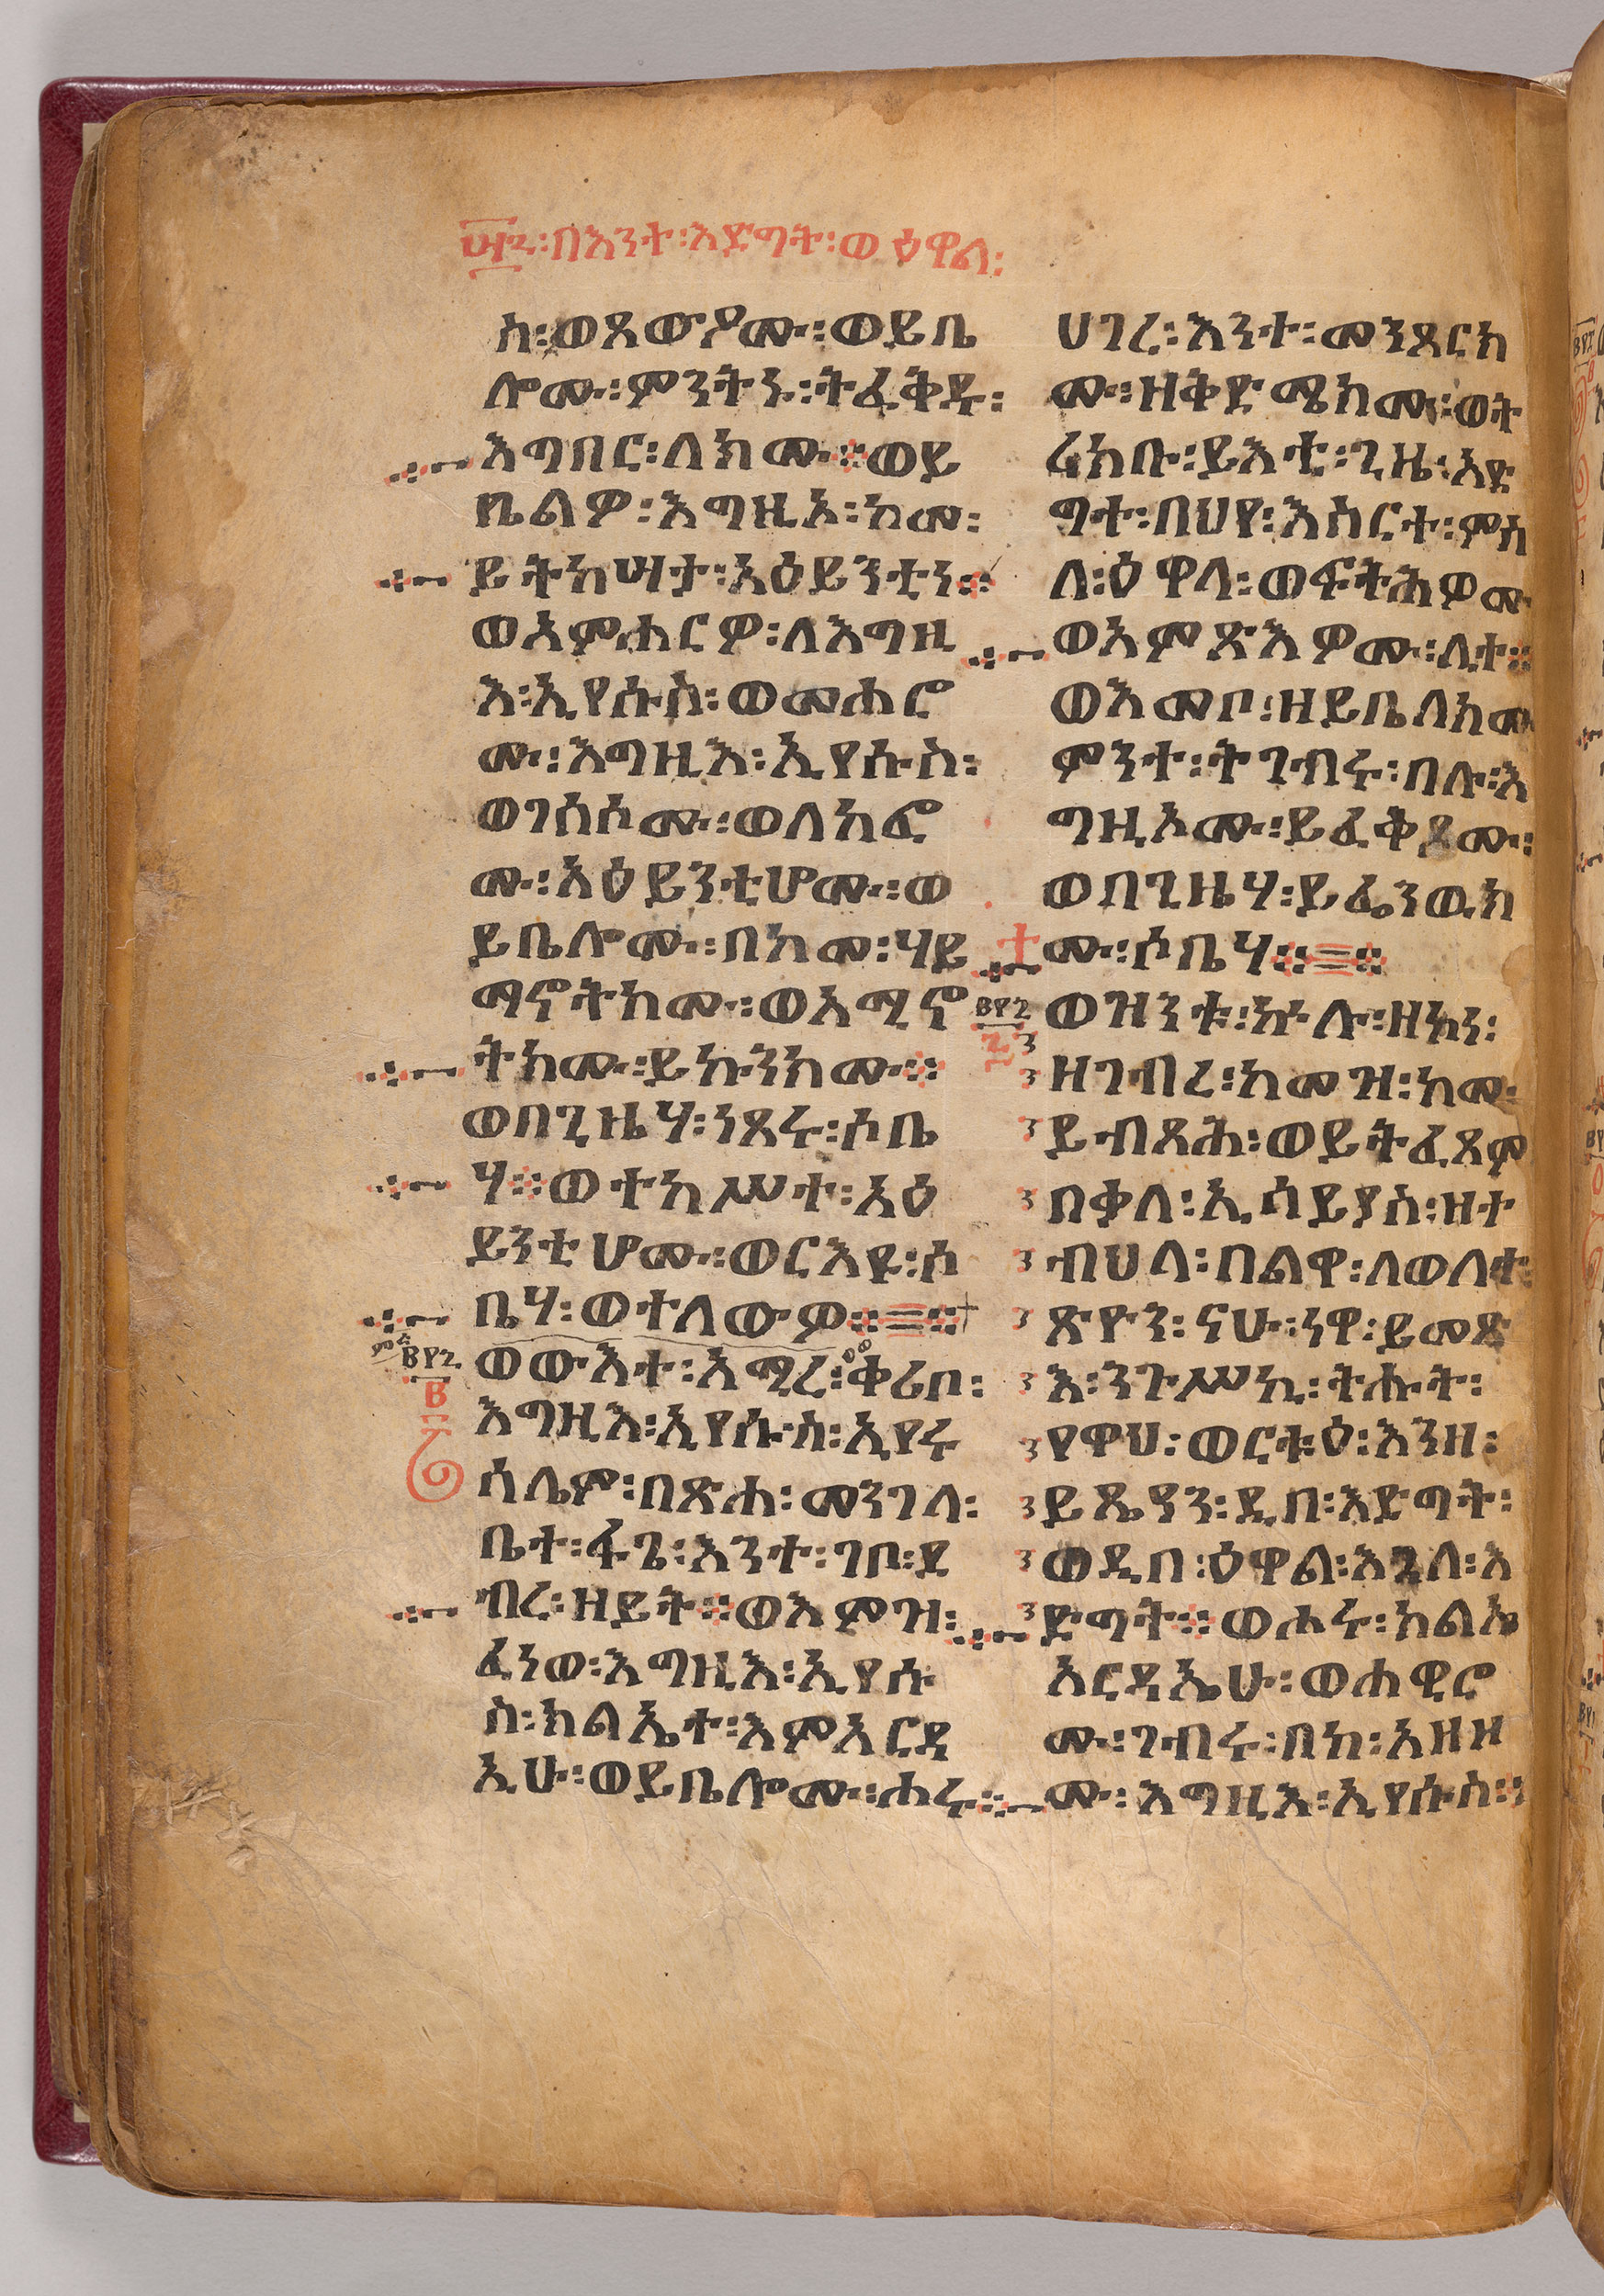 በእንተ፡እድግት፡ወዕዋል፡
ስ፡ወጸውዖሙ፡ወይቤ
ሎሙ፡ምንትኑ፡ትፈቅዱ፡
እግበር፡ለክሙ፨ወይ
ቤልዎ፡እግዚኦ፡ከመ፡
ይትከሠታ፡አዕይንቲነ፨
ወአምሐርዎ፡ለእግዚ
እ፡ኢየሱስ፡ወመሐሮ
ሙ፡እግዚእ፡ኢየሱስ፡
ወገሰሶሙ፡ወለከፎ
ሙ፡አዕይንቲሆሙ፡ወ
ይቤሎሙ፡በከመ፡ሃይ
ማኖትክሙ፡ወአሚኖ
ትክሙ፡ይኩንክሙ፨
ወበጊዜሃ፡ነጸሩ፡ሶቤ
ሃ፨ወተከሥተ፡አዕ
ይንቲሆሙ፡ወርእዩ፡ሶ
ቤሃ፡ወተለውዎ፨፨
ወውእተ፡አሚረ፡ቀሪቦ፡
እግዚእ፡ኢየሱስ፡ኢየሩ
ሳሌም፡በጽሐ፡መንገለ፡
ቤተ፡ፋጌ፡እንተ፡ገቦ፡ደ
ብረ፡ዘይት፨ወእምዝ፡
ፈነወ፡እግዚእ፡ኢየሱ
ስ፡ክልኤተ፡እምአርዳ
ኢሁ፡ወይቤሎሙ፡ሐሩ፨
ሀገረ፡እንተ፡መንጸርክ
ሙ፡ዘቅድሜክሙ፡ወት
ረክቡ፡ይእቲ፡ጊዜ፡እድ
ግተ፡በህየ፡እስርተ፡ምስ
ለ፡ዕዋላ፡ወፍትሕዎሙ
ወአምጽእዎሙ፡ሊተ፨
ወእመቦ፡ዘይቤለክሙ
ምንተ፡ትገብሩ፡በሉ፡እ
ግዚኦሙ፡ይፈቅዶሙ፡
ወበጊዜሃ፡ይፌንወክ
ሙ፡ሶቤሃ፨፨
ወዝንቱ፡ኵሉ፡ዘኮነ፡
ዘገብረ፡ከመዝ፡ከመ
ይብጻሕ፡ወይትፈጸም
በቃለ፡ኢሳይያስ፡ዘተ
ብህለ፡በልዋ፡ለወለተ፡
ጽዮን፡ናሁ፡ነዋ፡ይመጽ
እ፡ንጉሥኪ፡ትሑት፡
የዋህ፡ወርቱዕ፡እንዘ፡
ይጼዓን፡ዲበ፡እድግት፡
ወዲበ፡ዕዋል፡እጓለ፡እ
ድግት፨ወሐሩ፡ክልኤ
አርዳኢሁ፡ወሐዊሮ
ሙ፡ገብሩ፡በከ፡አዘዘ
ሙ፡እግዚእ፡ኢየሱስ፨